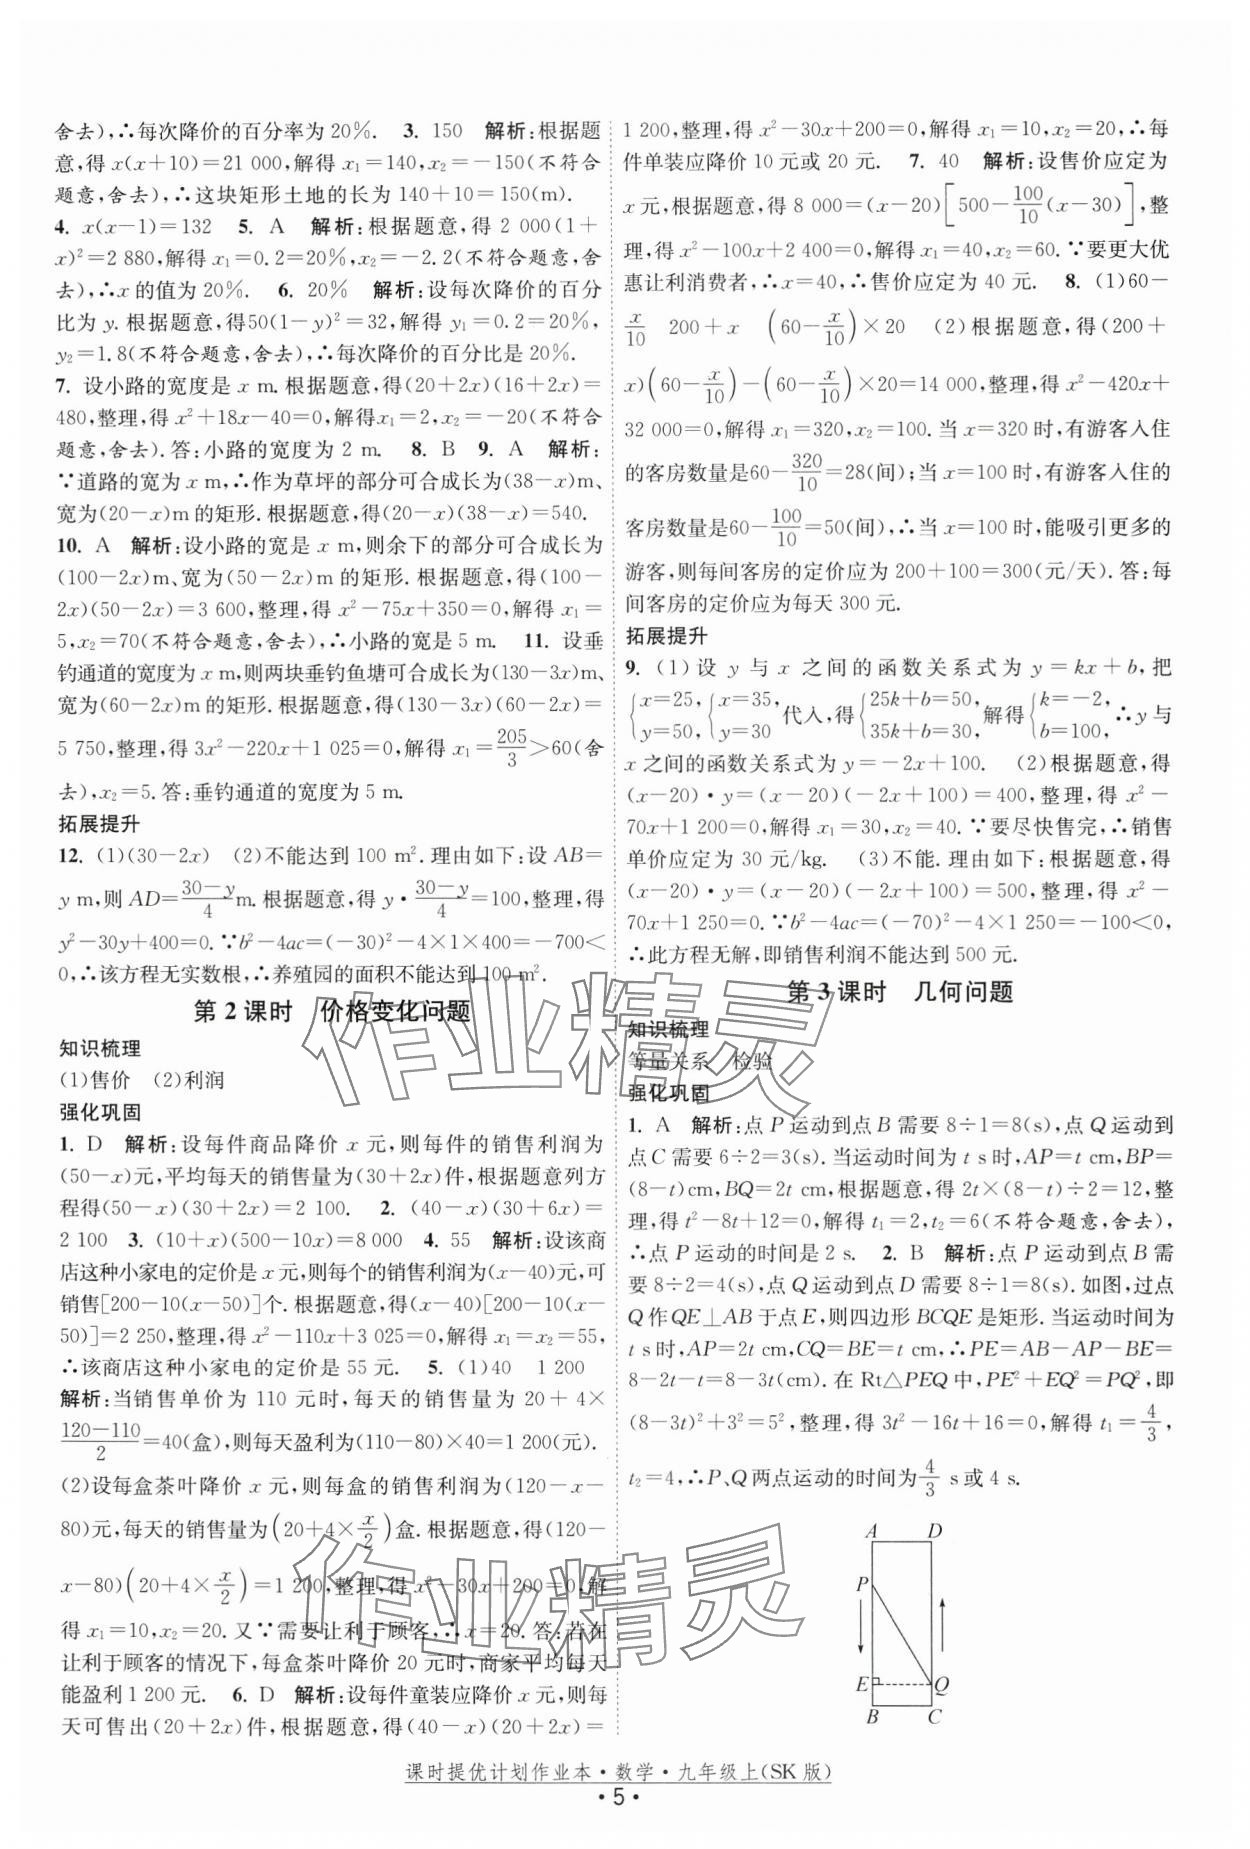 舍去),∴每次降价的百分率为 20%. 3. 150 解析:根据题
意,得 x(x+10)=21 000,解得 x₁=140,x₂=-150(不符合
题意,舍去),∴这块矩形土地的长为 140+10=150(m).
4. x(x-1)=132 5. A 解析:根据题意,得 2 000(1+
x)²=2 880,解得 x₁=0.2=20%,x₂=-2.2(不符合题意,舍
去),∴x 的值为 20%. 6. 20% 解析:设每次降价的百分
比为 y.根据题意,得50(1-y)²=32,解得 y₁=0.2=20%,
y₂=1.8(不符合题意,舍去),∴每次降价的百分比是 20%.
7. 设小路的宽度是 x m.根据题意,得(20+2x)(16+2x)=
480,整理,得 x²+18x-40=0,解得x₁=2,x₂=-20(不符合
题意,舍去).答:小路的宽度为 2 m. 8. B 9. A 解析:
∵道路的宽为 x m,∴作为草坪的部分可合成长为(38-x)m、
宽为(20-x)m 的矩形.根据题意,得(20-x)(38-x)=540.
10. A 解析:设小路的宽是 x m,则余下的部分可合成长为
(100-2x)m、宽为(50-2x)m 的矩形.根据题意,得(100-
2x)(50-2x)=3 600,整理,得 x²-75x+350=0,解得 x₁=
5,x₂=70(不符合题意,舍去),∴小路的宽是 5 m. 11. 设垂
钓通道的宽度为 x m,则两块垂钓鱼塘可合成长为(130-3x)m、
宽为(60-2x)m 的矩形.根据题意,得(130-3x)(60-2x)=
5 750,整理,得 3x²-220x+1 025=0,解得 x₁=205/3>60(舍
去),x₂=5.答:垂钓通道的宽度为 5 m.
拓展提升
12. (1)(30-2x) (2)不能达到 100 m².理由如下:设 AB=
y m,则 AD=(30-y)/4 m.根据题意,得 y·(30-y)/4=100,整理,得
y²-30y+400=0.∵b²-4ac=(-30)²-4×1×400=-700<
0,∴该方程无实数根,∴养殖园的面积不能达到 100 m².
第 2 课时 价格变化问题
知识梳理
(1)售价 (2)利润
强化巩固
1. D 解析:设每件商品降价 x 元,则每件的销售利润为
(50-x)元,平均每天的销售量为(30+2x)件,根据题意列方
程得(50-x)(30+2x)=2 100. 2. (40-x)(30+6x)=
2 100 3. (10+x)(500-10x)=8 000 4. 55 解析:设该商
店这种小家电的定价是 x 元,则每个的销售利润为(x-40)元,可
销售[200-10(x-50)]个.根据题意,得(x-40)[200-10(x-
50)]=2 250,整理,得 x²-110x+3 025=0,解得 x₁=x₂=55,
∴该商店这种小家电的定价是 55 元. 5. (1)40 1 200
解析:当销售单价为 110 元时,每天的销售量为 20+4×
(120-110)/2=40(盒),则每天盈利为(110-80)×40=1 200(元).
(2)设每盒茶叶降价 x 元,则每盒的销售利润为(120-x-
80)元,每天的销售量为(20+4×x/2)盒.根据题意,得(120-
x-80)(20+4×x/2)=1 200,整理,得 x²-30x+200=0,解
得 x₁=10,x₂=20.又∵需要让利于顾客,∴x=20.答:若在
让利于顾客的情况下,每盒茶叶降价 20 元时,商家平均每天
能盈利1 200 元. 6. D 解析:设每件童装应降价 x 元,则每
天可售出(20+2x)件,根据题意,得(40-x)(20+2x)=
1 200,整理,得 x²-30x+200=0,解得 x₁=10,x₂=20,∴每
件单装应降价 10 元或 20 元. 7. 40 解析:设售价应定为
x 元,根据题意,得 8 000=(x-20)[500-100/10(x-30)],整
理,得 x²-100x+2 400=0,解得 x₁=40,x₂=60.∵要更大优
惠让利消费者,∴x=40,∴售价应定为 40 元. 8. (1)60-
x/10 200+x (60-x/10)×20 (2)根据题意,得(200+
x)(60-x/10)-(60-x/10)×20=14 000,整理,得 x²-420x+
32 000=0,解得 x₁=320,x₂=100.当 x=320 时,有游客入住
的客房数量是60-320/10=28(间);当 x=100 时,有游客入住的
客房数量是60-100/10=50(间),∴当 x=100时,能吸引更多的
游客,则每间客房的定价应为 200+100=300(元/天).答:每
间客房的定价应为每天 300 元.
拓展提升
9. (1)设 y 与 x 之间的函数关系式为 y=kx+b,把
{x=25, y=50, {x=35, y=30 代入,得{25k+b=50, 35k+b=30, 解得{k=-2, b=100, ∴y 与
x 之间的函数关系式为 y=-2x+100. (2)根据题意,得
(x-20)·y=(x-20)(-2x+100)=400,整理,得 x²-
70x+1 200=0,解得 x₁=30,x₂=40.∵要尽快售完,∴销售
单价应定为 30 元/kg. (3)不能.理由如下:根据题意,得
(x-20)·y=(x-20)(-2x+100)=500,整理,得 x²-
70x+1 250=0.∵b²-4ac=(-70)²-4×1 250=-100<0,
∴此方程无解,即销售利润不能达到 500 元.
第 3 课时 几何问题
知识梳理
等量关系 检验
强化巩固
1. A 解析:点 P 运动到点 B 需要 8÷1=8(s),点 Q 运动到
点 C 需要 6÷2=3(s).当运动时间为 t s时,AP=t cm,BP=
(8-t)cm,BQ=2t cm,根据题意,得 2t×(8-t)÷2=12,整
理,得 t²-8t+12=0,解得 t₁=2,t₂=6(不符合题意,舍去),
∴点 P 运动的时间是 2 s. 2. B 解析:点 P 运动到点 B 需
要 8÷2=4(s),点 Q 运动到点 D 需要 8÷1=8(s).如图,过点
Q 作 QE⊥AB 于点 E,则四边形 BCQE 是矩形.当运动时间为
t s时,AP=2t cm,CQ=BE=t cm,∴PE=AB-AP-BE=
8-2t-t=8-3t(cm).在 Rt△PEQ 中,PE²+EQ²=PQ²,即
(8-3t)²+3²=5²,整理,得 3t²-16t+16=0,解得 t₁=4/3,
t₂=4,∴P、Q 两点运动的时间为4/3 s 或 4 s.
A D
P
E Q
B C
课时提优计划作业本·数学·九年级上(SK 版)
·5·
作业精灵
作业精灵